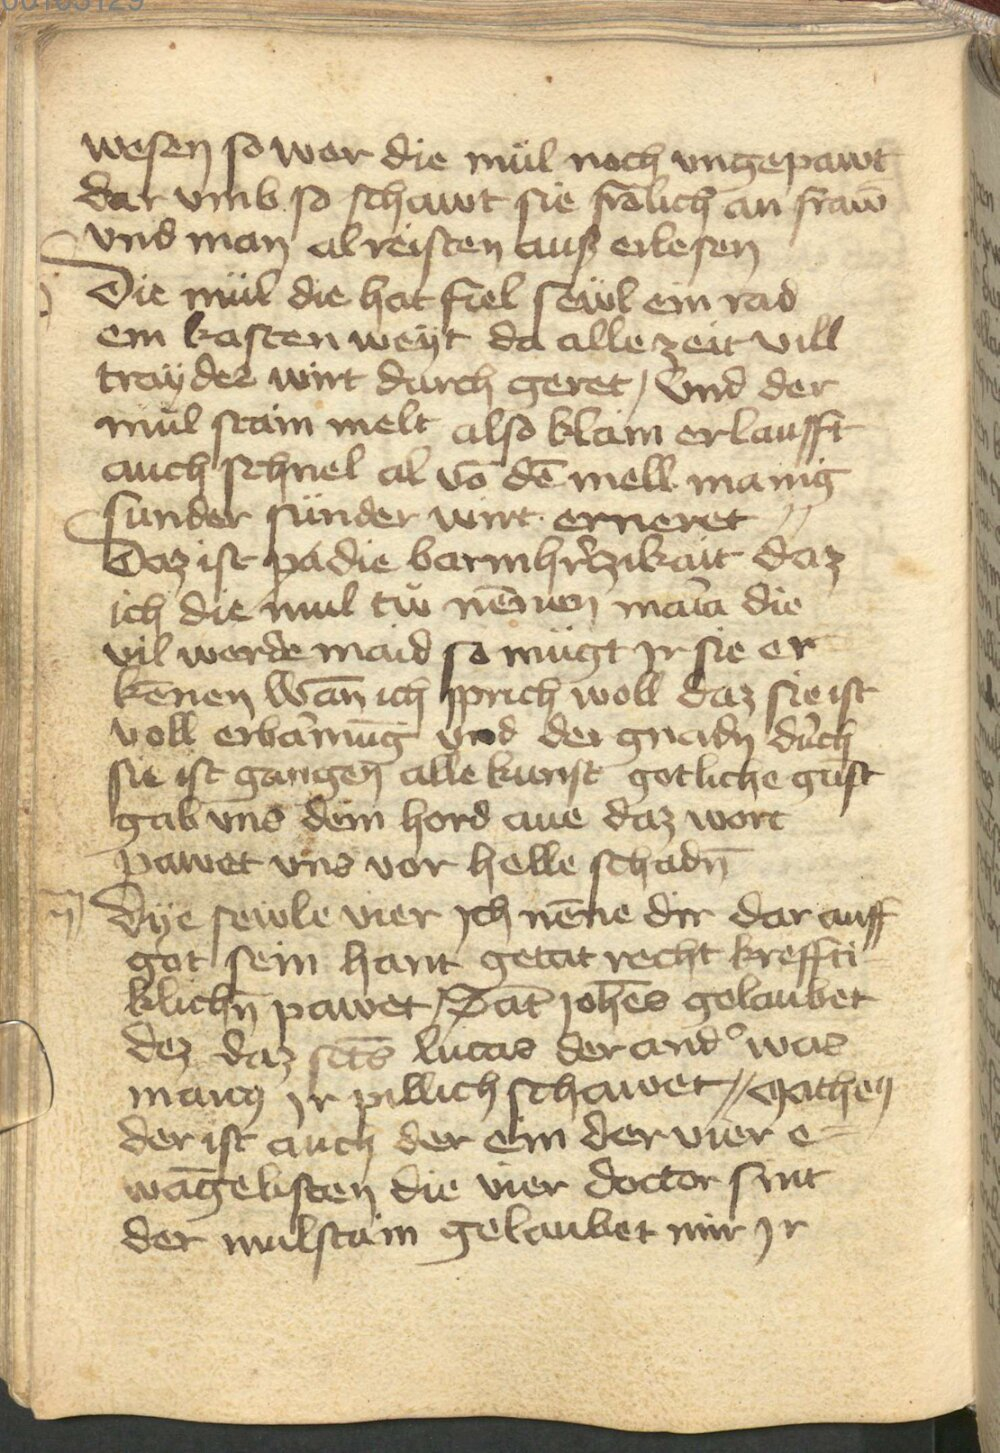 00105129
wesen so wer die mül noch vngepawt
dar vmb so schawt sie frölich an fraw̄
vnd man al reisten auß erlesen
Die mül die hat fiel sewl ein rad
ein kasten weyt da alle zeit vill
trayder wirt darch geret / Vnd der
mül stain melt also klain er laufft
auch schnel al vō dē mell manig
sunder sünder wirt erneret //
Daz ist pa die barmhr̄tzikait daz
ich die mul tw̄ nēnnen maīa die
vil werde maid so mügt jr sie er
kēnen Wān ich sprich woll daz sie ist
voll erbārmūg vnd der gnadn̄ dūch
sie ist gangen̄ alle kunst gotliche gust
gab vns dein hord aue daz wort
pawet vns vor helle schadn̄
Dye sewle vier jch nēne dir dar auff
got sein hant getat recht kreffti
klichn̄ pawet / Sāt joh̄es gelaubet
dez daz sct̄s lucas der and° was
marcg jr pillich schawet // Mathen
der ist auch der ein der vier e-
wāgelisten die vier doctor sint
der mulstain gelaubet mir jr